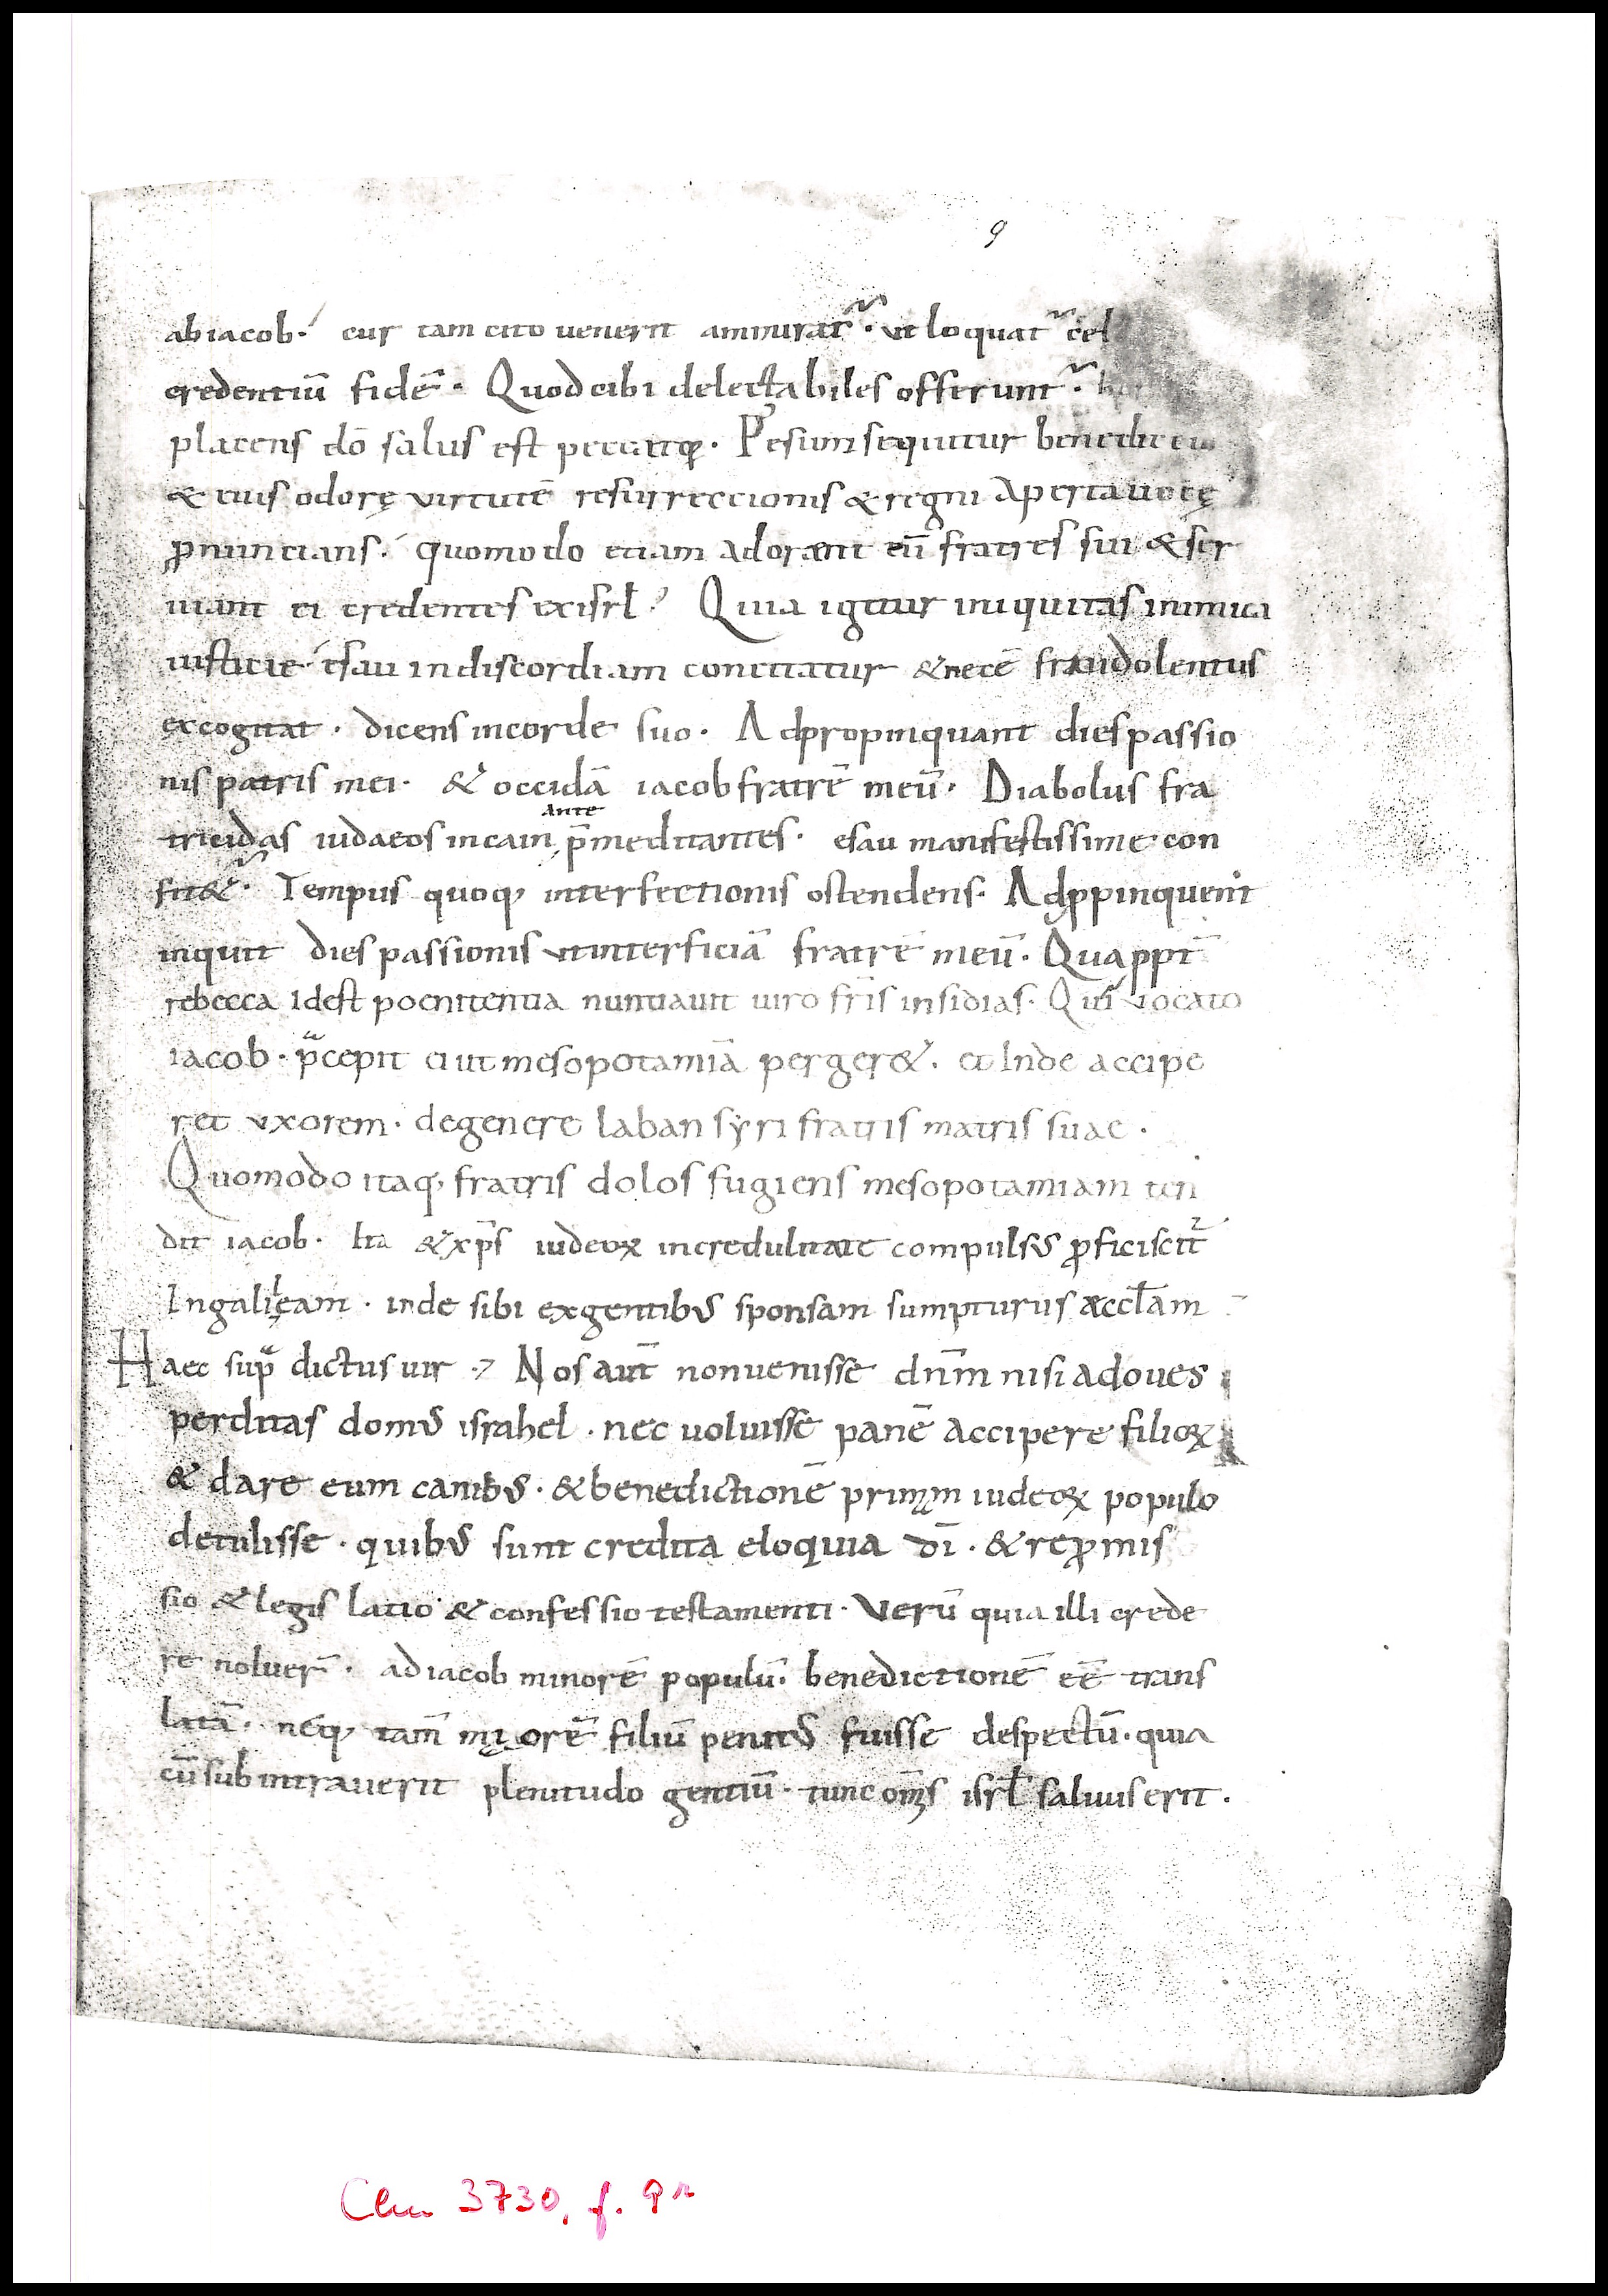 9
ab iacob· cur tam cito uenerit ammiratr̃· ut loquatr̃ cel
credentiũ fidẽ· Quod cibi delectabiles offerunt̃·
placens dõ salus est peccatoꝝ· Post esum sequitur benedictio
& eius odorę virtutẽ resurreccionis & regni Aperta uocę
ꝓnuncians· quomodo etiam adorant eũ fratres sui & ser
uiant ei credentes ex isrł? Quia igitur iniquitas inimica
iusticie· esau in discordiam concitatur & necẽ fraudolentus
excogitat· dicens in corde suo· Adpropinquant dies passio
nis patris mei· & occidã iacob fratrẽ meũ· Diabolus fra
tricidas iudaeos in cain ante p̃meditantes· esau manifestissime con
fit&̃· Tempus quoq; interfectionis ostendens· Adꝓpinquent
inquit dies passionis ut interficiã fratrẽ meũ· Quappt̃
rebecca idest poenitentia nuntiauit uiro fr̃is insidias· Qui uocato
iacob· p̃cepit ei ut mesopotamiã perger&· et Inde accipe
ret uxorem· de genere laban syri fratris matris suae·
Quomodo itaq; fratris dolos fugiens mesopotamiam ten
dit iacob· Ita & xp̃s iudeoꝝ incredulitate compulsus ꝓficiscit̃
In galileam· inde sibi ex gentibus sponsam sumpturus æccłam
Haec supͣ dictus uir· Nos aut̃ non uenisse dñm nisi ad oues
perditas domus israhel· nec uoluisse panẽ accipere filioꝝ
& dare eum canibus· & benedictionẽ primum iudeoꝝ populo
detulisse· quibus sunt credita eloquia dĩ· & reꝓmis
sio & legis latio & confessio testamenti· Verũ quia illi crede
re noluer̃· ad iacob minorẽ populũ· benedictionẽ eẽ trans
latã· neq; tam̃ maiorẽ filiũ penitus fuisse despectũ· quia
cũ subintrauerit plenitudo gentiũ· tunc om̃s isrł saluus erit·
Clm 3730, f. 9r